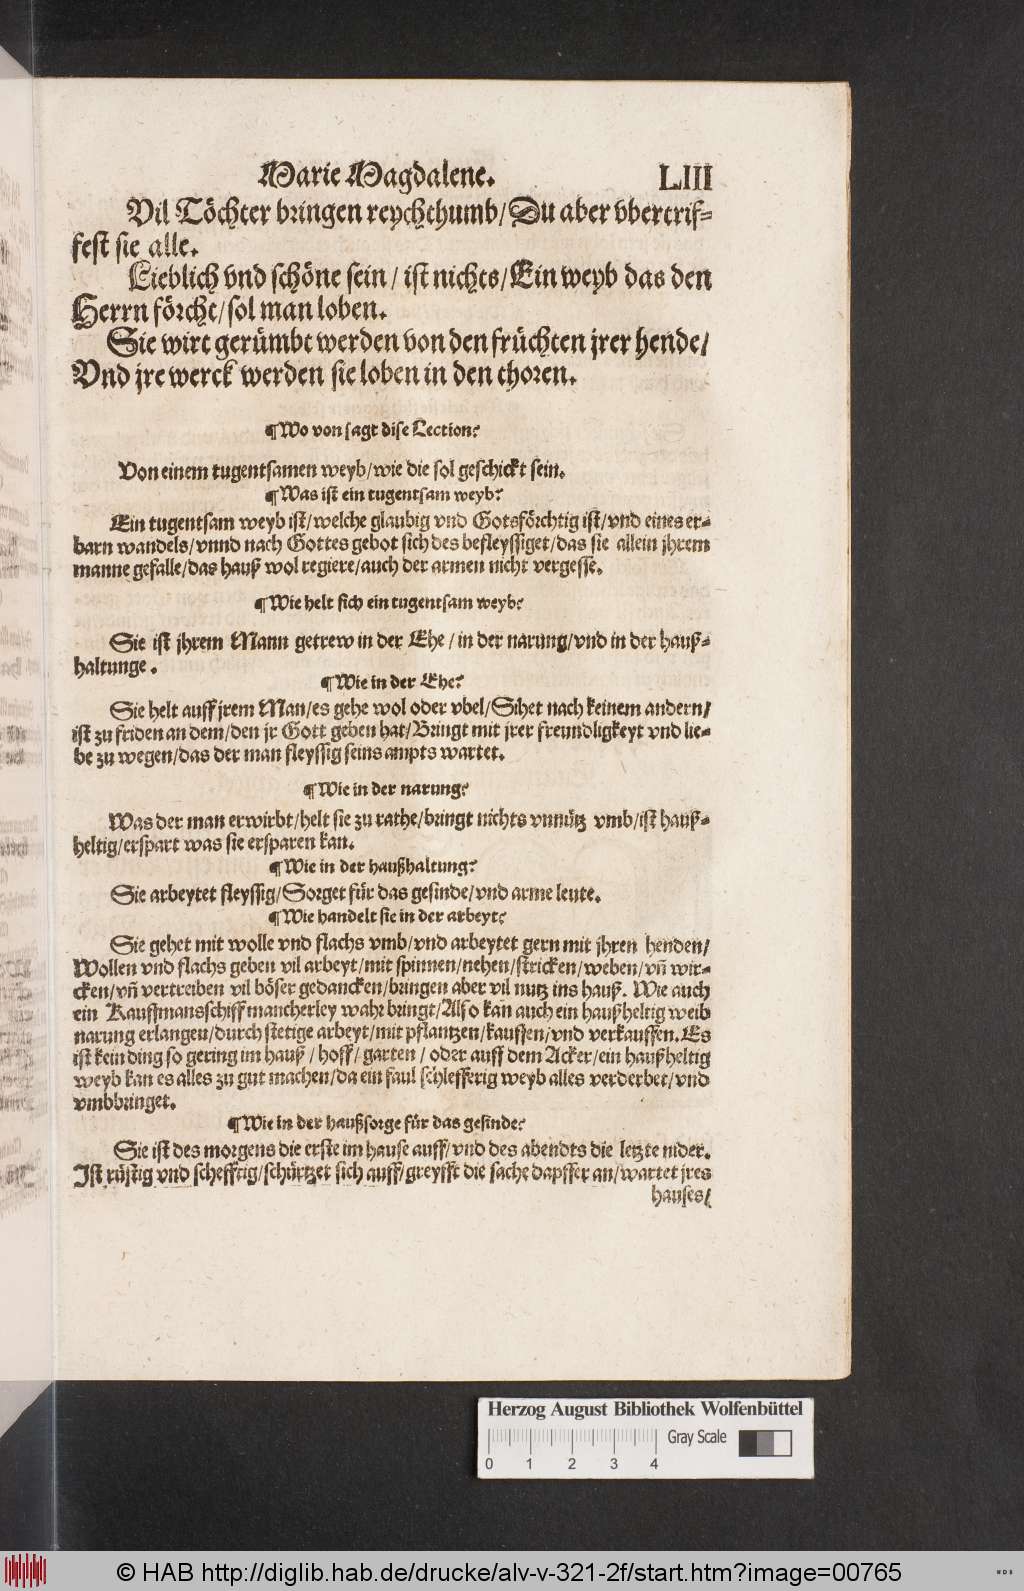 Marie Magdalene. LIII
Vil Töchter bringen reychthumb/Du aber vbertrif-
fest sie alle.
Lieblich vnd schöne sein/ ist nichts/Ein weyb das den
Herrn förcht/sol man loben.
Sie wirt gerümbt werden von den früchten jrer hende/
Vnd jre werck werden sie loben in den thoren.
¶Wo von sagt dise Lection?
Von einem tugentsamen weyb/wie die sol geschickt sein.
¶Was ist ein tugentsam weyb?
Ein tugentsam weyb ist/welche glaubig vnd Gotsförchtig ist/vnd eines er-
barn wandels/vnnd nach Gottes gebot sich des befleyssiget/das sie allein jhrem
manne gefalle/das hauß wol regiere/auch der armen nicht vergesse.
¶Wie helt sich ein tugentsam weyb?
Sie ist jhrem Mann getrew in der Ehe/in der narung/vnd in der hauß-
haltunge.
¶Wie in der Ehe?
Sie helt auff jrem Man/es gehe wol oder vbel/Sihet nach keinem andern/
ist zu friden an dem/den jr Gott geben hat/Bringt mit jrer freundligkeyt vnd lie-
be zu wegen/das der man fleyssig seins ampts wartet.
¶Wie in der narung?
Was der man erwirbt/helt sie zu rathe/bringt nichts vnnütz vmb/ist hauß-
heltig/erspart was sie ersparen kan.
¶Wie in der haußhaltung?
Sie arbeytet fleyssig/Sorget für das gesinde/vnd arme leute.
¶Wie handelt sie in der arbeyt?
Sie gehet mit wolle vnd flachs vmb/vnd arbeytet gern mit jhren henden/
Wollen vnd flachs geben vil arbeyt/mit spinnen/nehen/stricken/weben/vñ wir-
cken/vñ vertreiben vil böser gedancken/bringen aber vil nutz ins hauß. Wie auch
ein Kauffmansschiff mancherley wahr bringt/Also kan auch ein haußheltig weib
narung erlangen/durch stetige arbeyt/mit pflantzen/kauffen/vnd verkauffen. Es
ist kein ding so gering im hauß/hoff/garten/oder auff dem Acker/ein haußheltig
weyb kan es alles zu gut machen/da ein faul schlefferig weyb alles verderbet/vnd
vmbbringet.
¶Wie in der haußsorge für das gesinde?
Sie ist des morgens die erste im hause auff/vnd des abendts die letzte nider.
Ist rüstig vnd schefftig/schürtzet sich auff/greyfft die sache dapffer an/wartet jres
hauses/
Herzog August Bibliothek Wolfenbüttel
Gray Scale
0 1 2 3 4
© HAB http://diglib.hab.de/drucke/alv-v-321-2f/start.htm?image=00765